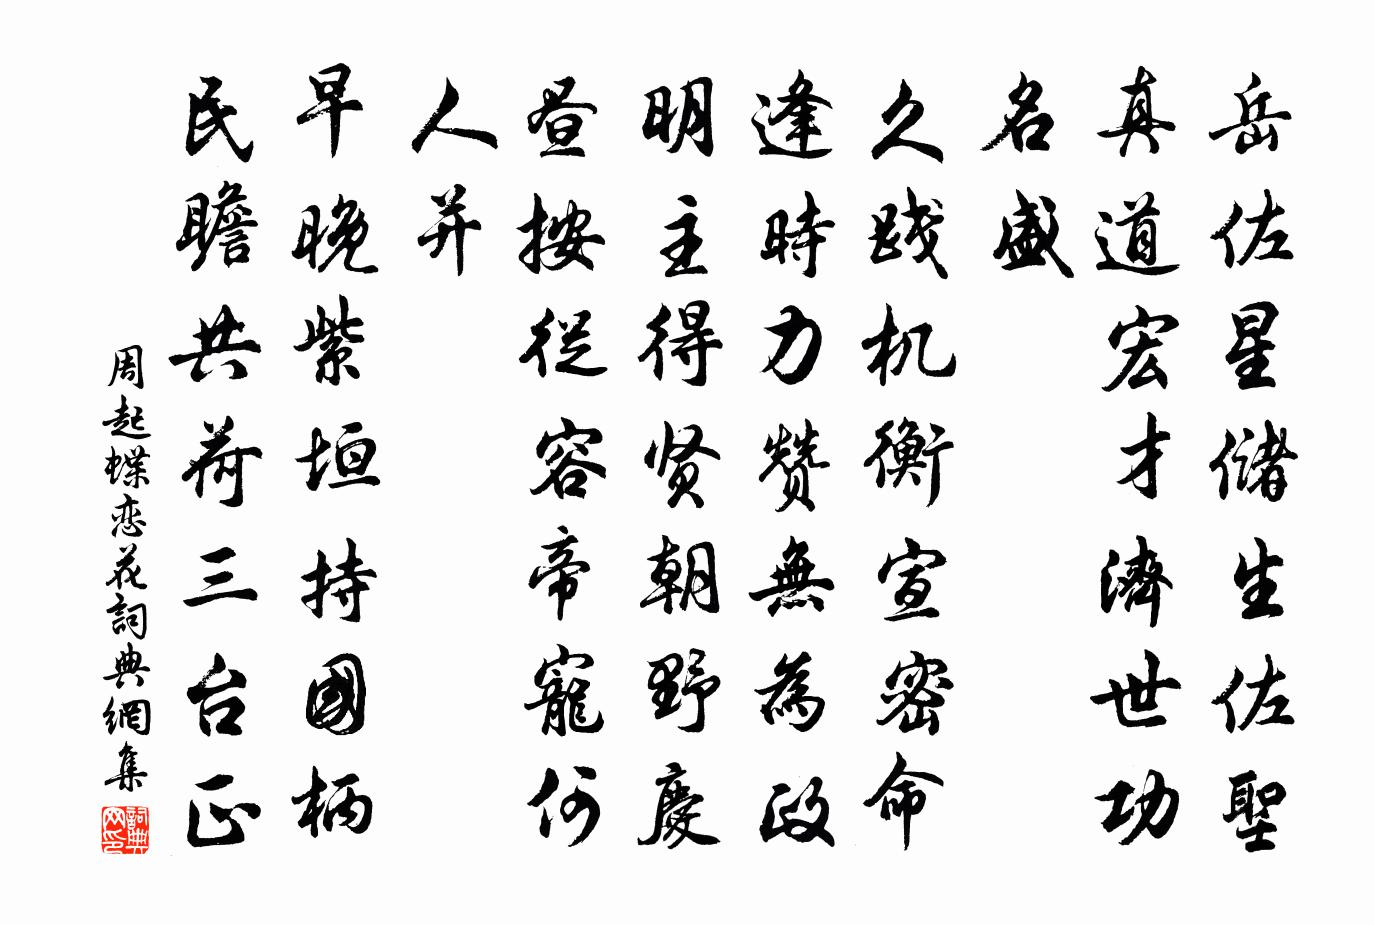 岳佐星儲生佐聖
真道宏才濟世功
名盛
久践机衡宣密命
逢時力赞無為政
明主得贤朝野慶
昼按從容帝寵何
人并
早晚紫垣持國柄
民瞻共荷三台正
周起蝶恋花詞典網集
詞典网印